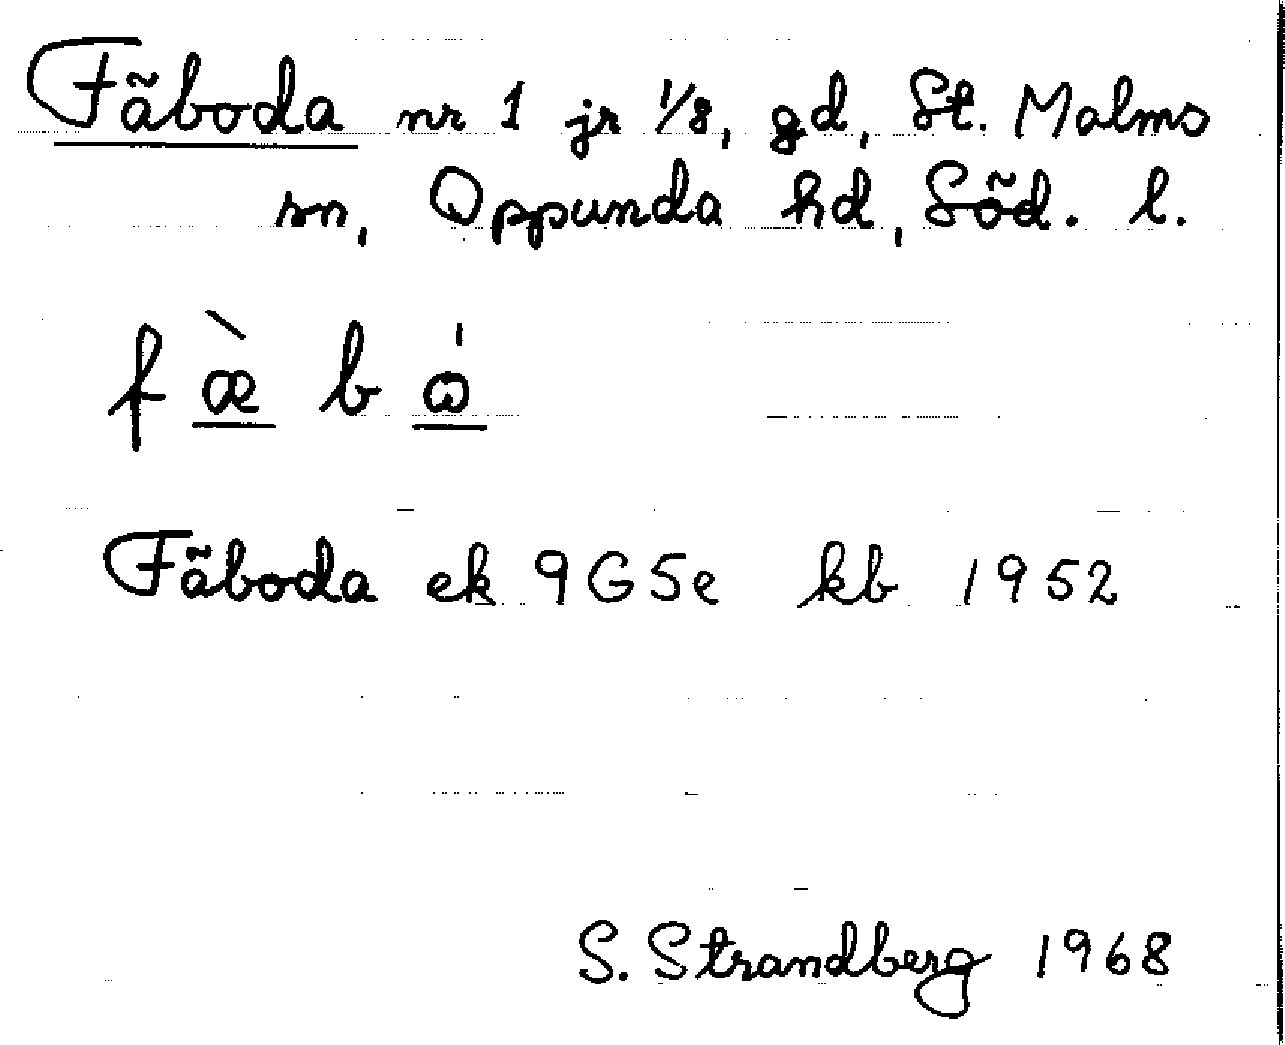 Fäboda nr 1 jr 1/8, gd, St. Malms
sn, Oppunda hd, Söd. l.
f æ̀ b ω̍
Fäboda ek 9G5e kb 1952
S. Strandberg 1968